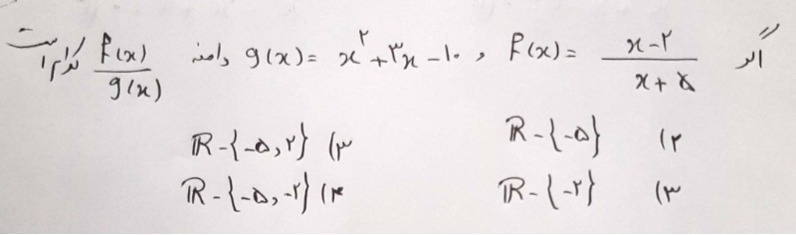 اگر f(x) = (x-۲)/(x+۵) , g(x) = x^۲+۳x-۱۰ دامنه f(x)/g(x) کدام است
۱۲) R-{-۵} ۳) R-{-۵,۲}
۳) R-{-۲} ۴) R-{-۵,-۲}